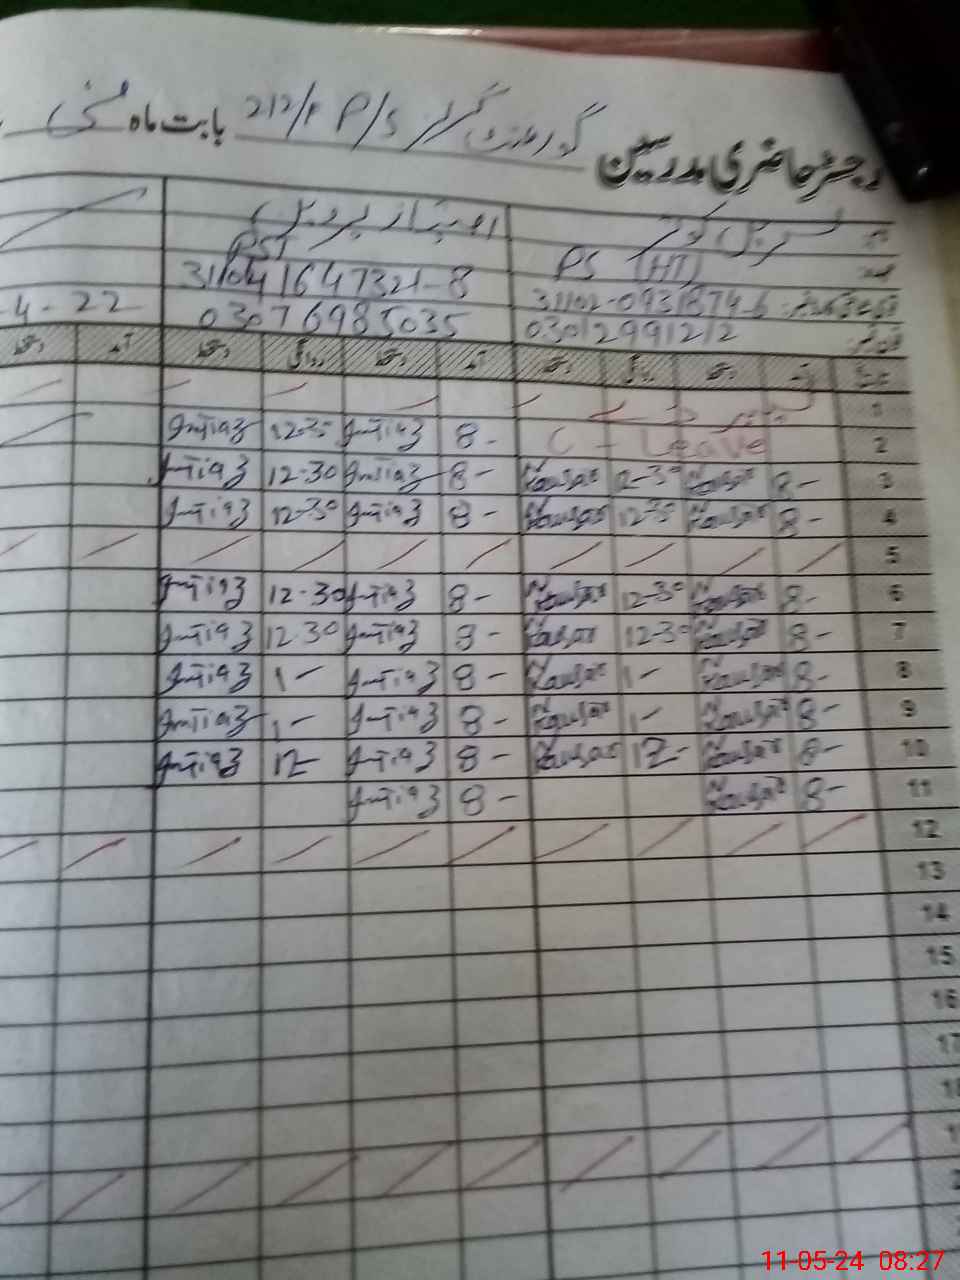 رجسٹر حاضری مدرسین گورنمنٹ گرلز P/S 212/F بابت ماہ مئی
کوثر
امتیاز پروین
PS (HT)
PST
31102-0931874-6
311041647321-8
03012991212
03076985035
4-22
1
2 C - Leave 8- Imtiaz 12-30 Imtiaz
3 8- Kausar 12-30 Kausar 8- Imtiaz 12-30 Imtiaz
4 8- Kausar 12-30 Kausar 8- Imtiaz 12-30 Imtiaz
5
6 8- Kausar 12-30 Kausar 8- Imtiaz 12-30 Imtiaz
7 8- Kausar 12-30 Kausar 8- Imtiaz 12-30 Imtiaz
8 8- Kausar 1- Kausar 8- Imtiaz 1- Imtiaz
9 8- Kausar 1- Kausar 8- Imtiaz 1- Imtiaz
10 8- Kausar 12- Kausar 8- Imtiaz 12- Imtiaz
11 8- Kausar 8- Imtiaz
12
13
14
15
16
17
11-05-24 08:27